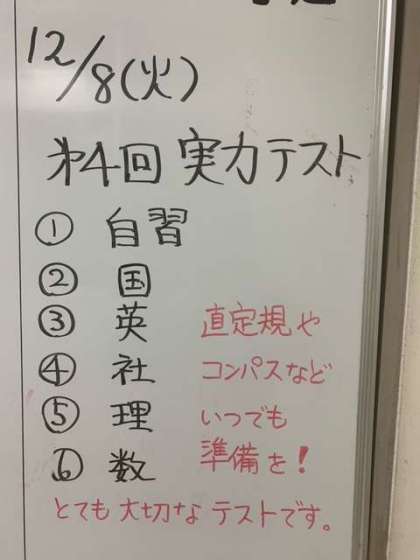 12/8(火)
第4回 実力テスト
① 自習
② 国
③ 英
④ 社
⑤ 理
⑥ 数
直定規や
コンパスなど
いつでも
準備を!
とても大切なテストです。